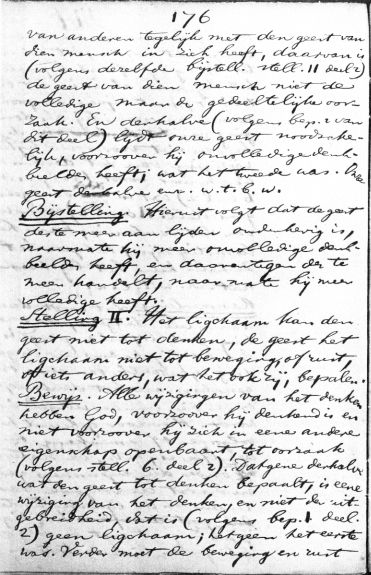 176
van anderen tegelijk met den geest van
dien mensch in zich heeft, daarvan is
(volgens dezelfde bijstell. stell. 11 deel 2)
de geest van dien mensch niet de
volledige maar de gedeeltelijke oor-
zaak. En derhalve (volgens bep. 2 van
dit deel) lijdt onze geest noodzake-
lijk, voorzoover hij onvolledige denk-
beelden heeft; wat het tweede was. Onze
geest derhalve enz. w. t. b. w.
Bijstelling. Hieruit volgt dat de geest
des te meer aan lijden onderhevig is,
naarmate hij meer onvolledige denk-
beelden heeft, en daarentegen des te
meer handelt, naarmate hij meer
volledige heeft.
Stelling II. Het ligchaam kan den
geest niet tot denken, de geest het
ligchaam niet tot beweging, of rust,
of iets anders, wat het ook zij, bepalen.
Bewijs. Alle wijzigingen van het denken
hebben God, voorzoover hij denkend is en
niet voorzoover hij zich in eene andere
eigenschap openbaart, tot oorzaak
(volgens stell. 6. deel 2). Datgene derhalve
wat den geest tot denken bepaalt, is eene
wijziging van het denken en niet der uit-
gebreidheid, dat is (volgens bep. 1 deel.
2) geen ligchaam; hetgeen het eerste
was. Verder moet de beweging en rust